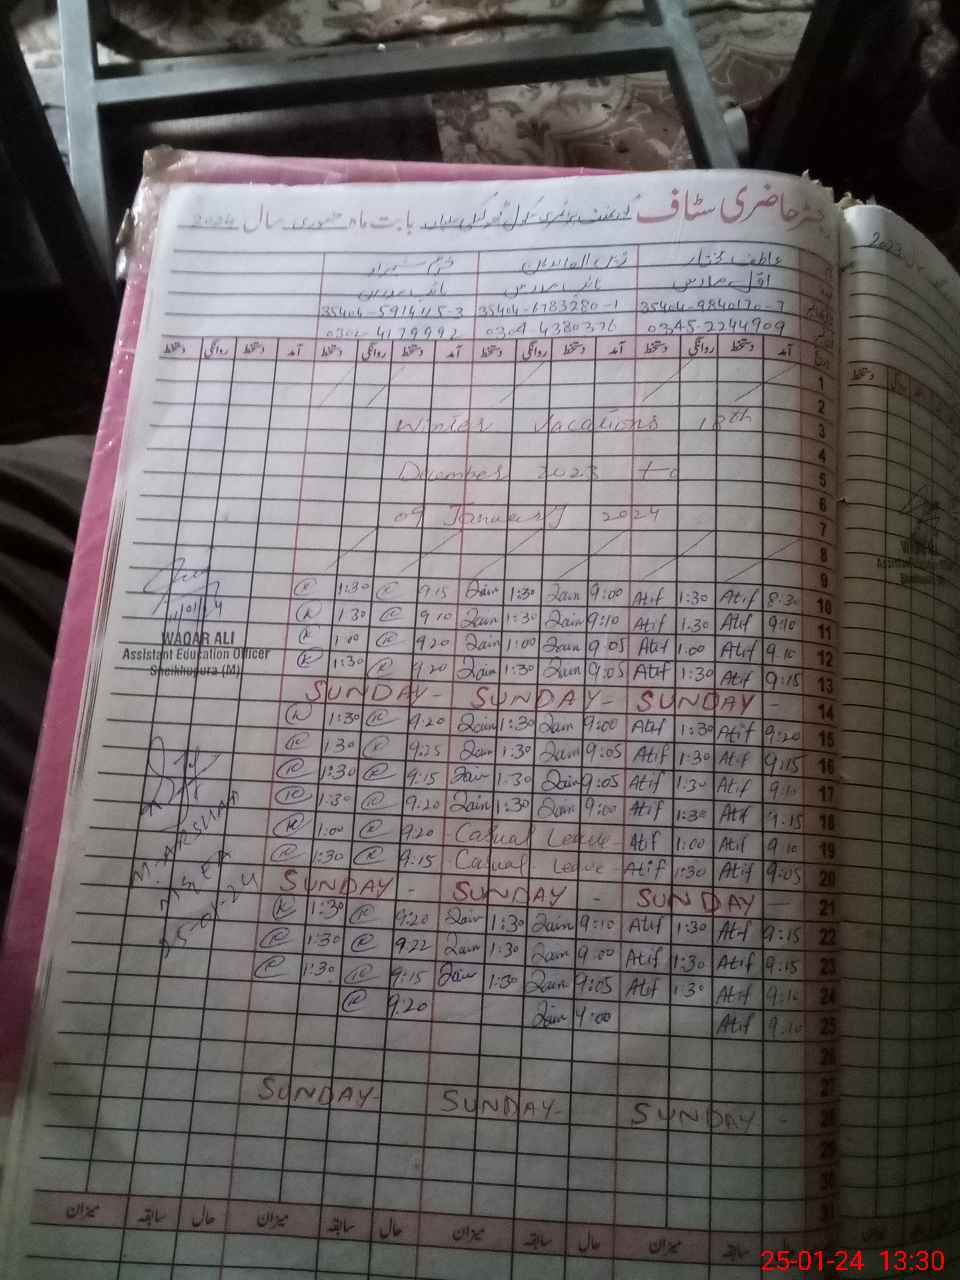 رجسٹر حاضری سٹاف گورنمنٹ پرائمری سکول بابت ماہ جنوری سال 2024
عاطف
نائب مدرس
35404-5914115-3 35404-6783280-1 35404-9840170-7
0304-4380376 0345-2244909
دستخط روانگی دستخط آمد دستخط روانگی دستخط آمد دستخط روانگی دستخط آمد دستخط روانگی دستخط آمد
1
2
Winter Vacations 18th 3
4
December 2023 to 5
6
09 January 2024 7
8
9
1:30 9:15 Zain 1:30 Zain 9:00 Atif 1:30 Atif 8:30 10
1:30 9:10 Zain 1:30 Zain 9:10 Atif 1:30 Atif 9:10 11
1:00 9:20 Zain 1:00 Zain 9:05 Atif 1:00 Atif 9:10 12
1:30 9:20 Zain 1:30 Zain 9:05 Atif 1:30 Atif 9:15 13
SUNDAY - SUNDAY - SUNDAY - 14
1:30 9:20 Zain 1:30 Zain 9:00 Atif 1:30 Atif 9:20 15
1:30 9:25 Zain 1:30 Zain 9:05 Atif 1:30 Atif 9:15 16
1:30 9:15 Zain 1:30 Zain 9:05 Atif 1:30 Atif 9:10 17
1:30 9:20 Zain 1:30 Zain 9:00 Atif 1:30 Atif 9:15 18
1:00 9:20 Casual Leave - Atif 1:00 Atif 9:10 19
1:30 9:15 Casual Leave - Atif 1:30 Atif 9:05 20
SUNDAY - SUNDAY - SUNDAY - 21
1:30 9:20 Zain 1:30 Zain 9:10 Atif 1:30 Atif 9:15 22
1:30 9:22 Zain 1:30 Zain 9:00 Atif 1:30 Atif 9:15 23
1:30 9:15 Zain 1:30 Zain 9:05 Atif 1:30 Atif 9:10 24
9:20 Zain 9:00 Atif 9:10 25
26
27
SUNDAY - SUNDAY - SUNDAY - 28
29
30
31
میزان سابقہ حال میزان سابقہ حال میزان سابقہ حال میزان سابقہ حال
11/01/24
WAQAR ALI
Assistant Education Officer
Sheikhupura (M)
M. ARSHAD
25-01-24
2023
25-01-24 13:30